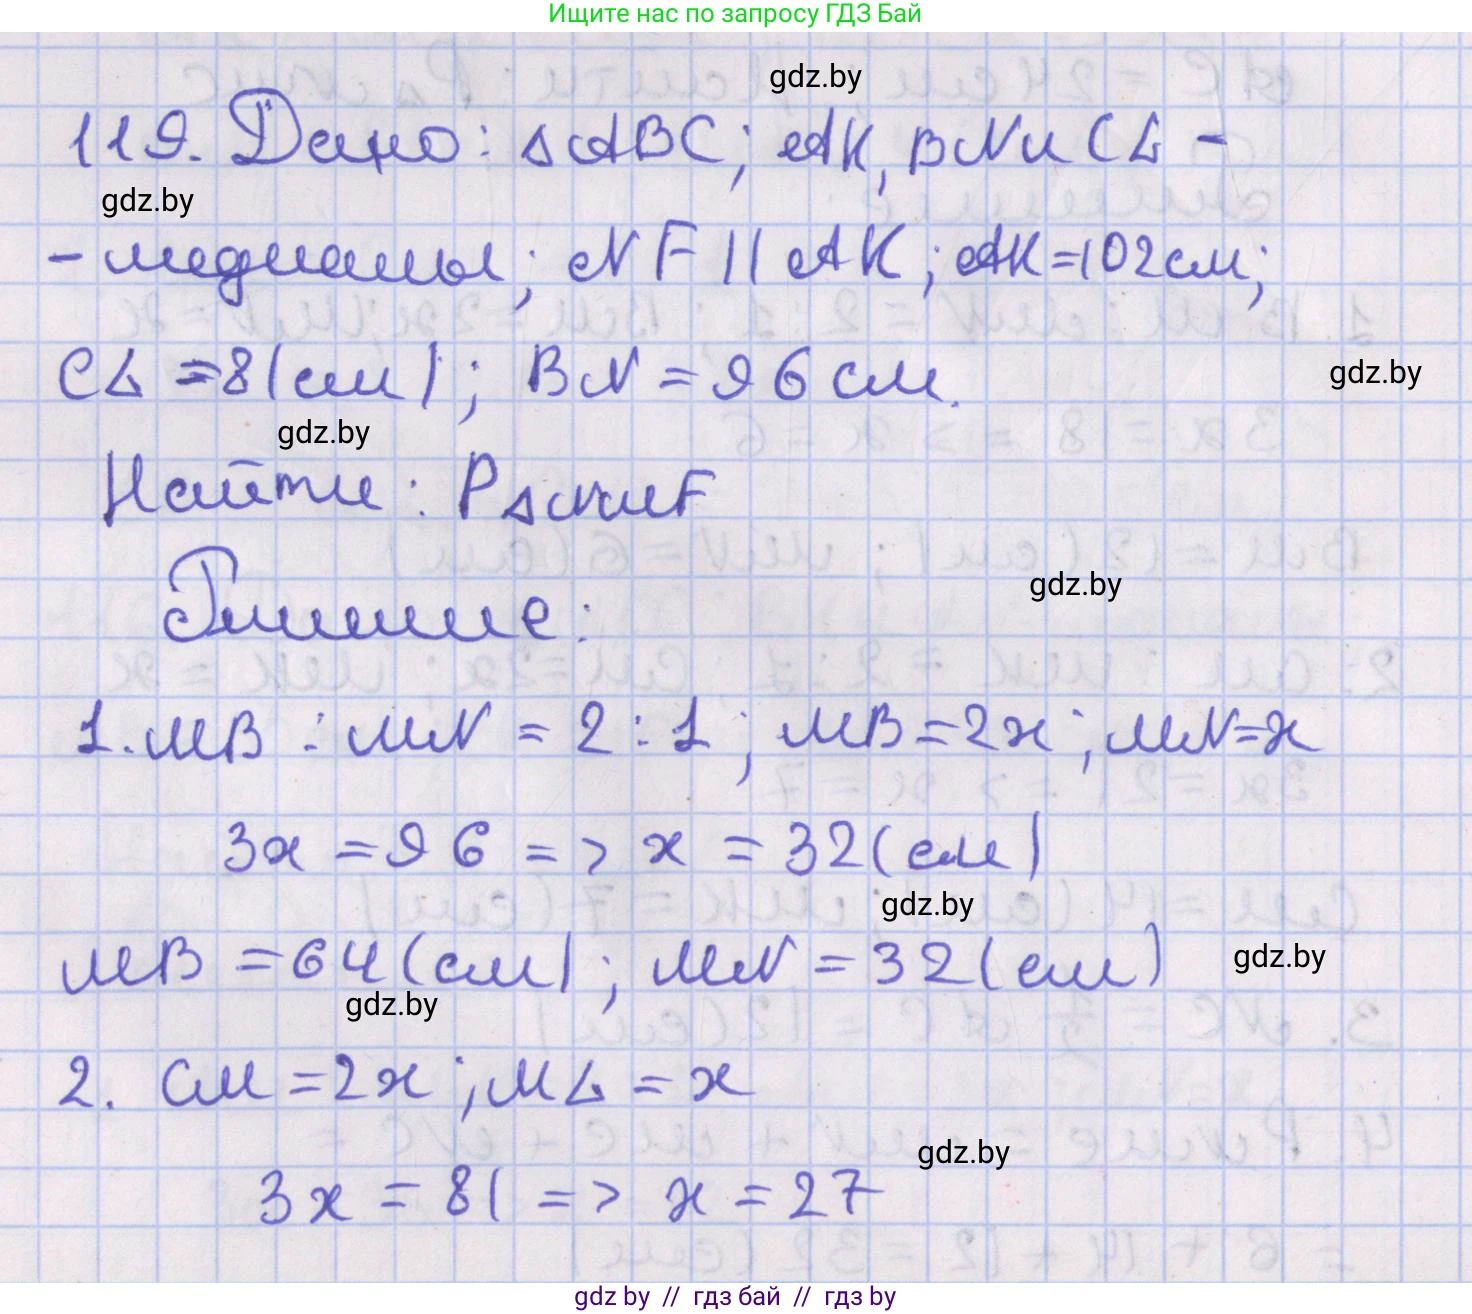 Ищите нас по запросу ГДЗ Бай
gdz.by
119. Дано: △ABC; AK, BN и CL -
gdz.by
- медианы; NF || AK; AK=102см;
CL = 81(см); BN = 96 см.
gdz.by
gdz.by
Найти: P△NMF
Решение:
gdz.by
1. MB : MN = 2 : 1; MB = 2x; MN = x
3x = 96 => x = 32 (см)
gdz.by
MB = 64 (см); MN = 32 (см)
gdz.by
gdz.by
2. CM = 2x; ML = x
gdz.by
3x = 81 => x = 27
gdz by // гдз бай // гдз by